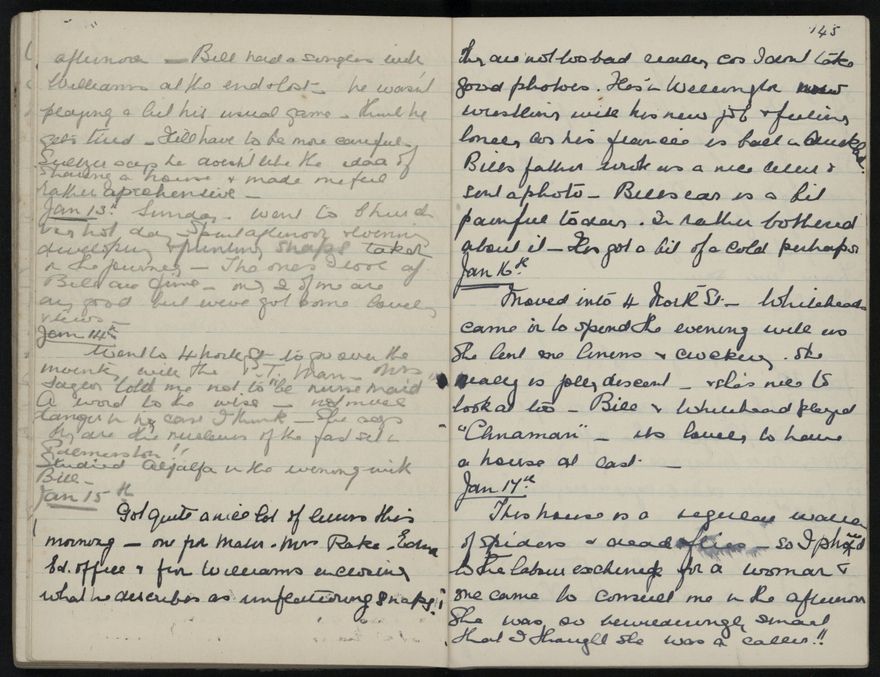 afternoon — Bill had a singles with
Williams at the end & lost — he wasn't
playing a bit his usual game — think he
gets tired — I'll have to be more careful
says he doesn't like the idea of
sharing a house & made me feel
rather aprehensive —
Jan 13th Sunday. Went to Church
very hot day — Spent afternoon & evening
developing & printing snaps taken
on the journey — The ones I took of
Bill are fine — only 2 of me are
any good but we've got some lovely
views —
Jan 14th
Went to 4 North St to go over the
with the P.T. man — Mrs
told me not to be nurse maid
A word to the wise — not much
danger in my case I think — She says
they are the nucleus of the fast set in
Palmerston!!
Studied in the evening with
Bill —
Jan 15th
Got quite a nice lot of letters this
morning — one from Mater. Mrs Rake. Edna
Ed. office & from Williams enclosing
what he describes as unflattering snaps!
145
they are not too bad really cos I don't take
good photos. He's in Wellington now
wrestling with his new job & feeling
lonely cos his fiancée is back in
Bill's father wrote us a nice letter &
sent a photo — Bill's ear is a bit
painful today. I'm rather bothered
about it — He's got a bit of a cold perhaps
Jan 16th
Moved into 4 North St. — Whiteheads
came in to spend the evening with us
She lent me linens & crockery. She
really is jolly descent — & she's nice to
look at too — Bill & Whitehead played
"Chnaman" — its lovely to have
a house at last. —
Jan 17th
This house is a regular
of spiders & dead flies — so I phoned
to the labour exchange for a woman &
one came to consult me in the afternoon
She was so bewilderingly smart
that I thought she was a caller!!